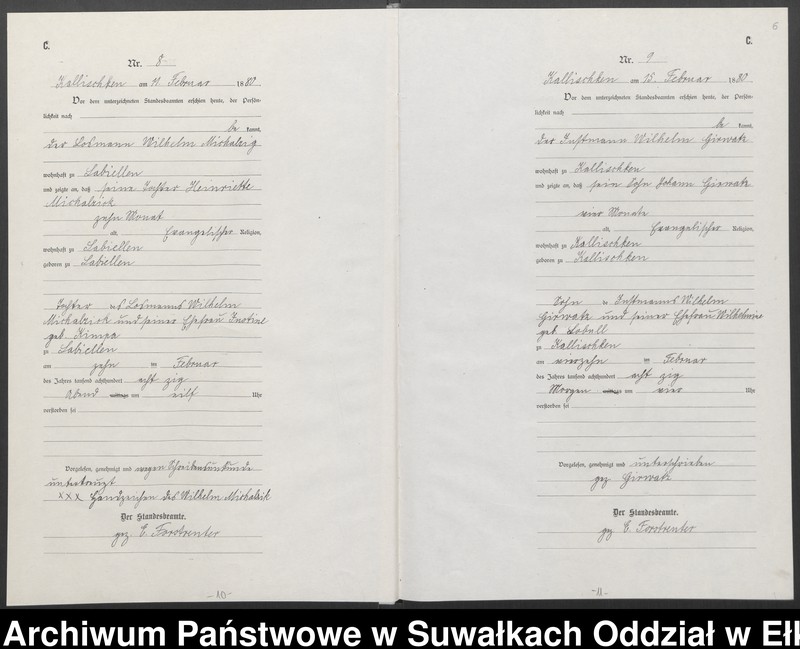 C.
Nr. 8
Kallischken am 11 Februar 1880
Vor dem unterzeichneten Standesbeamten erschien heute, der Persön-
lichkeit nach
be kannt,
der Losmann Wilhelm Michalzig
wohnhaft zu Labiellen
und zeigte an, daß seine Tochter Heinriette
Michalzick
zehn Monat
alt, Evangelischer Religion,
wohnhaft zu Labiellen
geboren zu Labiellen
Tochter des Losmanns Wilhelm
Michalzick und seiner Ehefrau
geb.
zu Labiellen
am zehn ten Februar
des Jahres tausend achthundert acht zig
Abend um eilf Uhr
verstorben sei
Vorgelesen, genehmigt und wegen Schreibensunkunde
unterkreuzt
XXX Handzeichen des Wilhelm Michalzik
Der Standesbeamte.
gez E. Forstreuter
-10-
6
C.
Nr. 9
Kallischken am 15 Februar 1880
Vor dem unterzeichneten Standesbeamten erschien heute, der Persön-
lichkeit nach
be kannt,
der Instmann Wilhelm Girwatz
wohnhaft zu Kallischken
und zeigte an, daß sein Sohn Johann Girwatz
vier Monate
alt, Evangelischer Religion,
wohnhaft zu Kallischken
geboren zu Kallischken
Sohn des Instmanns Wilhelm
Girwatz und seiner Ehefrau Wilhelmine
geb.
zu Kallischken
am vierzehn ten Februar
des Jahres tausend achthundert acht zig
Morgen um vier Uhr
verstorben sei
Vorgelesen, genehmigt und unterschrieben
gez Girwatz
Der Standesbeamte.
gez E. Forstreuter
-11-
Archiwum Państwowe w Suwałkach Oddział w Ełk